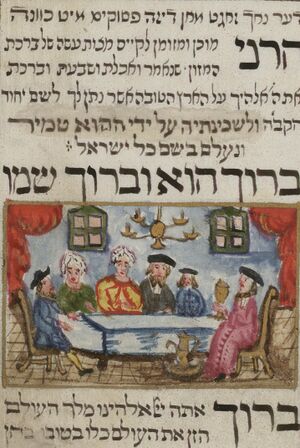 מיט כוונה
הרני מוכן ומזומן לקיים מצות עשה של ברכת
המזון שנאמר ואכלת ושבעת וברכת
את ה' אלהיך על הארץ הטובה אשר נתן לך לשם יחוד
הקבה ולשכינתיה על ידי ההוא טמיר
ונעלם בשם כל ישראל
ברוך הוא וברוך שמו
ברוך אתה יי אלהינו מלך העולם
הזן את העולם כלו בטובו בחן